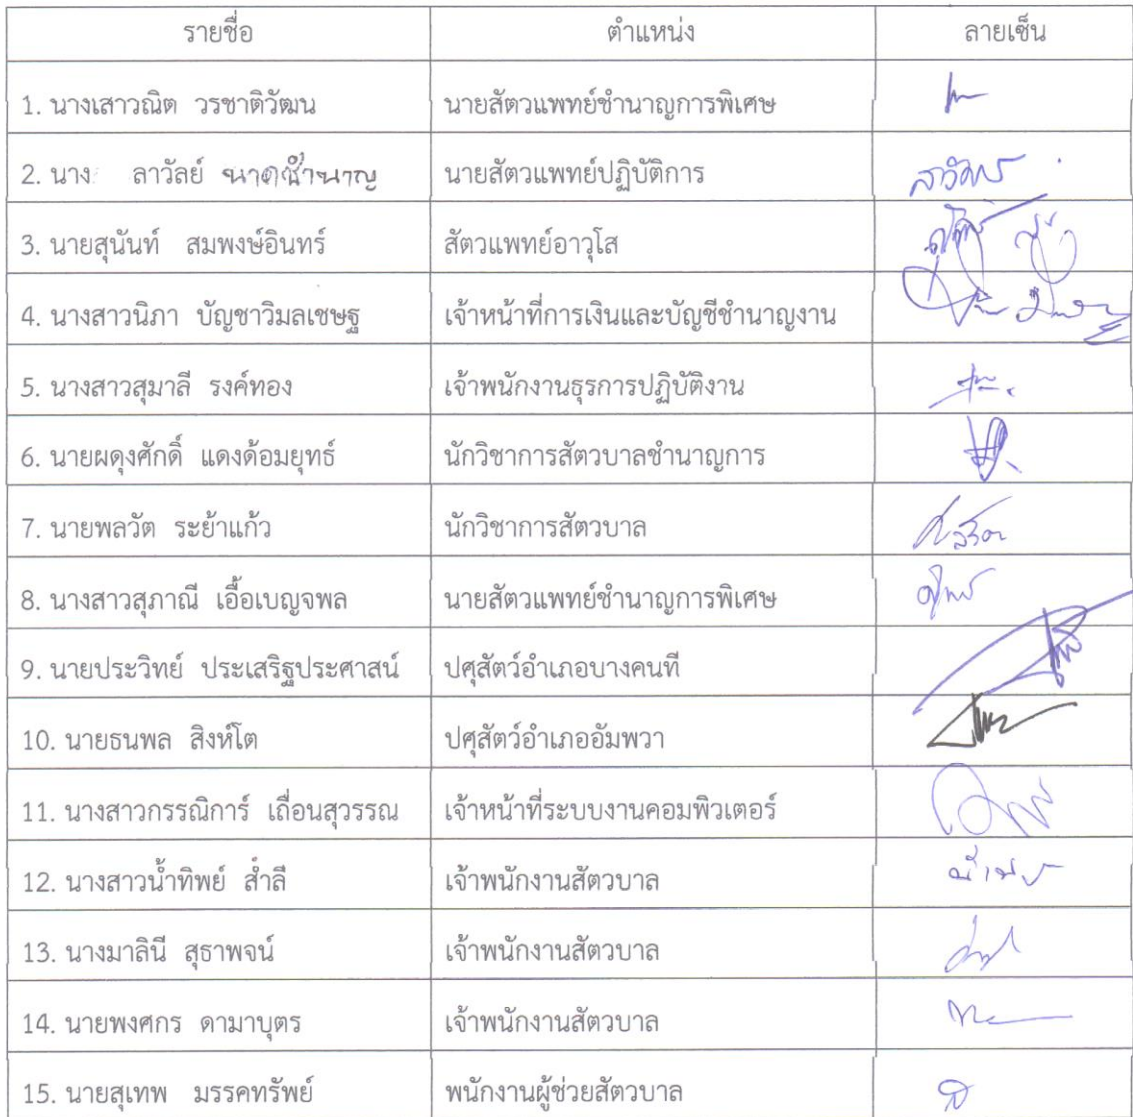 รายชื่อ ตำแหน่ง ลายเซ็น
1. นางเสาวณิต วรชาติวัฒน นายสัตวแพทย์ชำนาญการพิเศษ
2. นาง ลาวัลย์ นาคชำนาญ นายสัตวแพทย์ปฏิบัติการ ลาวัลย์
3. นายสุนันท์ สมพงษ์อินทร์ สัตวแพทย์อาวุโส
4. นางสาวนิภา บัญชาวิมลเชษฐ เจ้าหน้าที่การเงินและบัญชีชำนาญงาน
5. นางสาวสุมาลี รงค์ทอง เจ้าพนักงานธุรการปฏิบัติงาน
6. นายผดุงศักดิ์ แดงด้อมยุทธ์ นักวิชาการสัตวบาลชำนาญการ
7. นายพลวัต ระย้าแก้ว นักวิชาการสัตวบาล
8. นางสาวสุภาณี เอื้อเบญจพล นายสัตวแพทย์ชำนาญการพิเศษ
9. นายประวิทย์ ประเสริฐประศาสน์ ปศุสัตว์อำเภอบางคนที
10. นายธนพล สิงห์โต ปศุสัตว์อำเภออัมพวา
11. นางสาวกรรณิการ์ เถื่อนสุวรรณ เจ้าหน้าที่ระบบงานคอมพิวเตอร์
12. นางสาวน้ำทิพย์ ส่ำลี เจ้าพนักงานสัตวบาล
13. นางมาลินี สุธาพจน์ เจ้าพนักงานสัตวบาล
14. นายพงศกร ดามาบุตร เจ้าพนักงานสัตวบาล
15. นายสุเทพ มรรคทรัพย์ พนักงานผู้ช่วยสัตวบาล